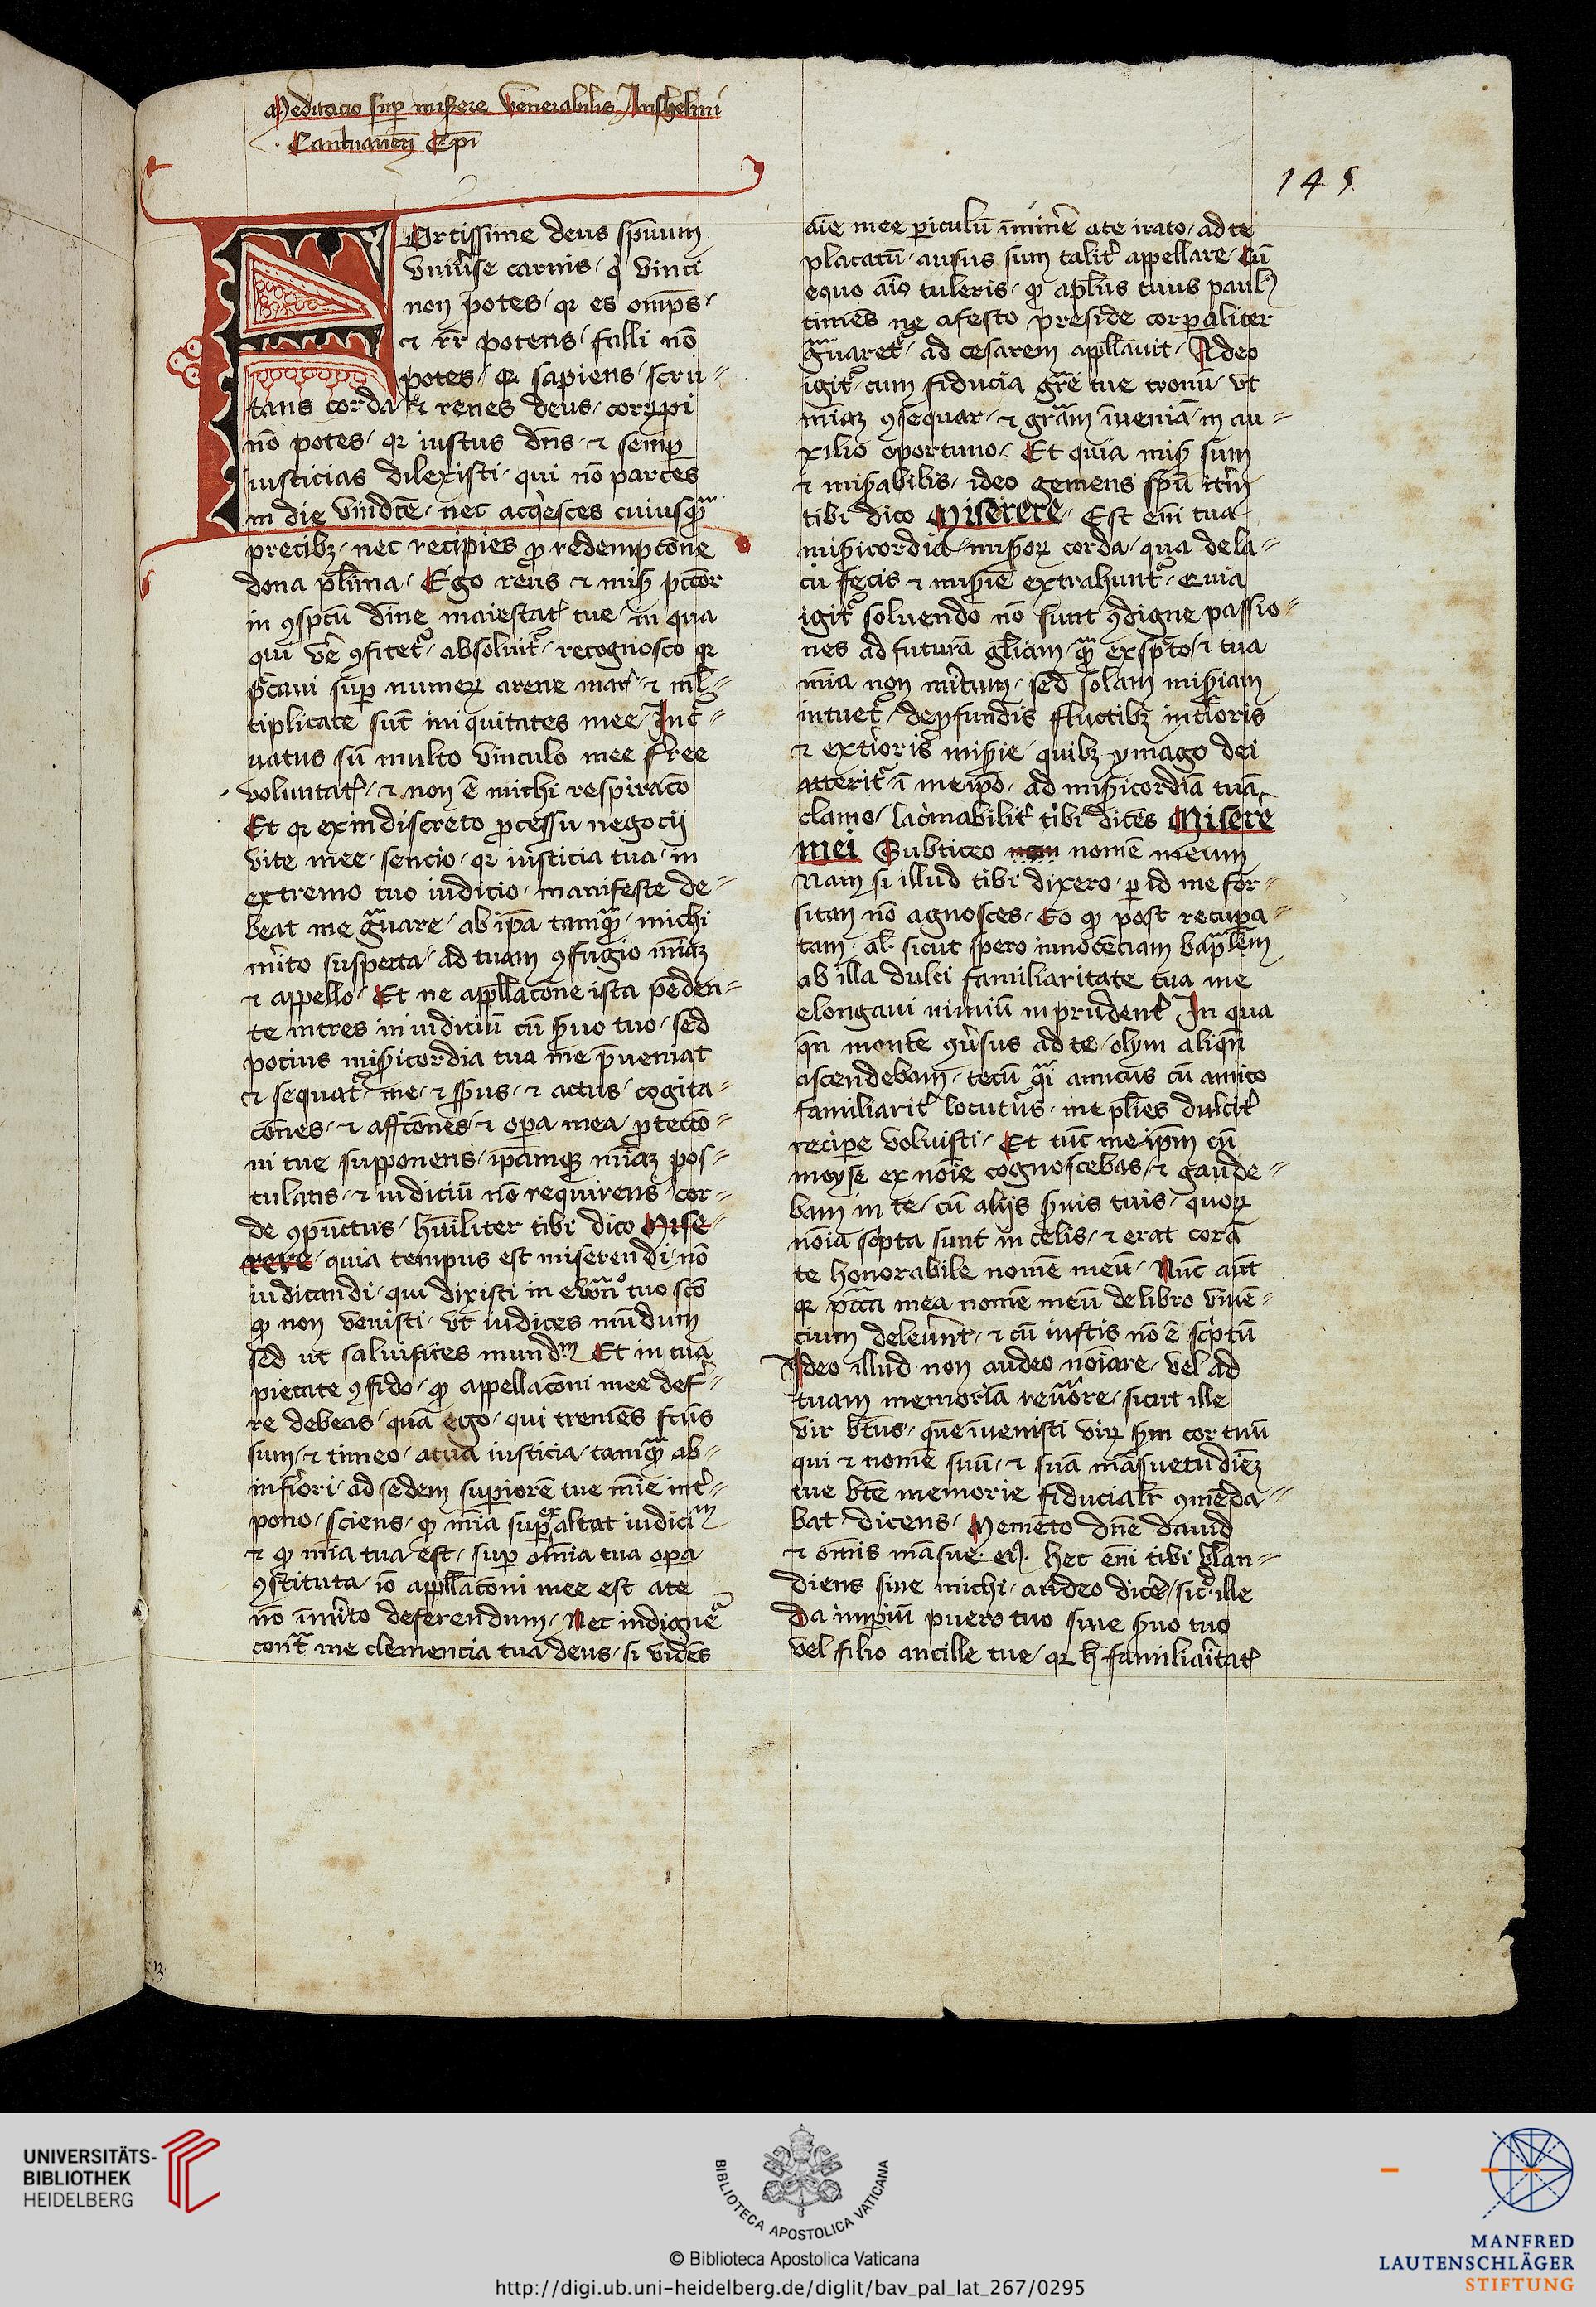 Meditacio sup miserere venerabilis Anshelmi
Cantuarien̄ Ep̄i
145
FOrtissime deus sp̄uum
vniu̾se carnis / q̇ vinci
non potes / qꝛ es omp̄s /
⁊ rr̄ potens / falli nō
potes / qꝛ sapiens / scru〃
tans corda / ⁊ renes deus / corꝛupi
nō potes / qꝛ iustus dn̄s / ⁊ semꝑ
iusticias dilexisti / qui nō parces
in die vindc̄e / nec acq̇esces cuiusqᷓ
precibꝫ / nec recipies ꝓ redempcōne
dona pl̄ima / Ego reus ⁊ miſ̾ pcc̄or
in ꝯsptū diīne maiestatꝭ tue / in qua
qui ve̾ ꝯfitet᷑ / absoluit᷑ / recognosco qꝛ
pc̄caui suꝑ numeꝝ arene mar̾ / ⁊ ml̄〃
tiplicate sūt iniquitates mee / Inc᷑〃
uatus sū multo vinculo mee fe̾ree
voluntatꝭ / ⁊ non ē michi respiracō
Et qꝛ exindiscreto ꝓcessu negocij
vite mee / sencio / qꝛ iusticia tua / in
extremo tuo iudicio / manifeste de〃
beat me gᷓuare / ab ip̄a tamqᷓ / michi
me̾ito suspecta / ad tuam ꝯfugio mīaꝫ
⁊ appello / Et ne appll̄acōne ista pēden〃
te intres in iudiciū cū ſ̾uo tuo / sed
pocius miſ̾icordia tua me p̄ueniat
⁊ sequat᷑ me / ⁊ ſp̄us / ⁊ actus / cogita〃
cōnes / ⁊ affcōnes / ⁊ oꝑa mea / ꝓteccō〃
ni tue supponens / ip̄amqꝫ mīaꝫ pos〃
tulans / ⁊ iudiciū nō requirens / cor〃
de ꝯpūctus / hūiliter tibi dico Mise〃
rere / quia tempus est miserendi / nō
iudicandi / qui dixisti in ewanᵒ tuo scō
ꝙ non venisti / vt iudices mūdum
sed ut saluifices mundᵐ Et in tua
pietate ꝯfido / ꝙ appellacōni mee def̾〃
re debeas / quā ego / qui tremēs fc̄us
sum / ⁊ timeo / atua iusticia / tamqᷓ ab〃
infe̾iori / ad sedem superiorē tue mīe int̾〃
pono / sciens / ꝙ mīa suꝑexaltat iudiciᵐ
⁊ ꝙ mīa tua est / suꝑ om̄ia tua oꝑa
ꝯstituta / iō appll̄acōni mee est ate
nō īme̾ito deferendum / Nec indignet᷑
cont᷑ me clemencia tua deus / si videns
aīe mee ꝑiculū īmine̾ ate irato / ad te
placatū / ausus sum talit̾ appellare / Cū
equo aīo tuleris / ꝙ apl̄us tuus paulꝰ
timēs ne afesto preside corꝑaliter
gᷓuaret᷑ / ad cesarem appll̄auit / Adeo
igit᷑ / cum fiducia gr̄e tue tronū / vt
mīaꝫ ꝯsequar / ⁊ grām īueniā / in au〃
xilio oportuno / Et quia miſ̾ sum
⁊ miſ̾abilis / ideo gemens spū
tibi dico Miserere / Est eni tua
miſ̾icordia / miſ̾oꝝ corda / qua de la〃
cu fecis ⁊ miſ̾ie extrahunt᷑ / Quia
igit᷑ soluendo nō sunt ꝯdigne passio〃
nes ad futurā gl̄iam / qᷓ exspc̄to / ⁊ tua
mīa non me̾itum / sed solam miſ̾iam
intuet᷑ / de ꝓfundis fluctibꝫ int̾ioris
⁊ exte̾ioris miſ̾ie / quibꝫ ymago dei
atterit᷑ ī meip̄o / ad miſ̾icordiā tuā
clamo / lac̾mabilit̾ tibi dicens Misere̾
mei Subticeo non nomē meum
Nam si illud tibi dixero / ꝑ id me for〃
sitan nō agnosces / Eo ꝙ post recuꝑa〃
tam / al̄ sicut spero innocēciam bap̄lem
ab illa dulci familiaritate tua me
elongaui nimiū inprudent̾ In qua
qn̄ monte ꝯu̾sus ad te / olym aliqn̄
ascendebam / tecū qᷓi amicus cū amico
familiarit̾ locutus / me pl̄ies dulcit̾
reciꝑe voluisti / Et tūc meip̄m cū
moyse ex noīe cognoscebas / ⁊ gaude〃
bam in te / cū alijs ſ̾uis tuis / quoꝝ
noīa sc̾pta sunt in celis / ⁊ erat corā
te honorabile nomē meū / Nūc aūt
qꝛ pcc̄a mea nomē meū de libro viuē〃
cium deleue̾nt / ⁊ cū iustis nō ē sc̾ptū
Ideo illud non audeo noīare / vel ad
tuam memoriā reuo̾care / sicut ille
vir bt̄us / quē īuenisti viꝝ ſm̄ cor tuū
qui ⁊ nomē suū / ⁊ suā māsuetudiēꝫ
tue bt̄e memorie fiducialr̄ ꝯmēda〃
bat dicens / Memēto dn̄e dauid
⁊ om̄is māsue. eiꝰ. Hec eni tibi blan〃
diens siue michi / audeo dice̾ / sic᷑ ille
Da imꝑiū puero tuo siue ſ̾uo tuo
vel filio ancille tue / qꝛ h̄ familiaritatꝭ
13
UNIVERSITÄTS-
BIBLIOTHEK
HEIDELBERG
BIBLIOTECA APOSTOLICA VATICANA
© Biblioteca Apostolica Vaticana
http://digi.ub.uni-heidelberg.de/diglit/bav_pal_lat_267/0295
MANFRED
LAUTENSCHLÄGER
STIFTUNG